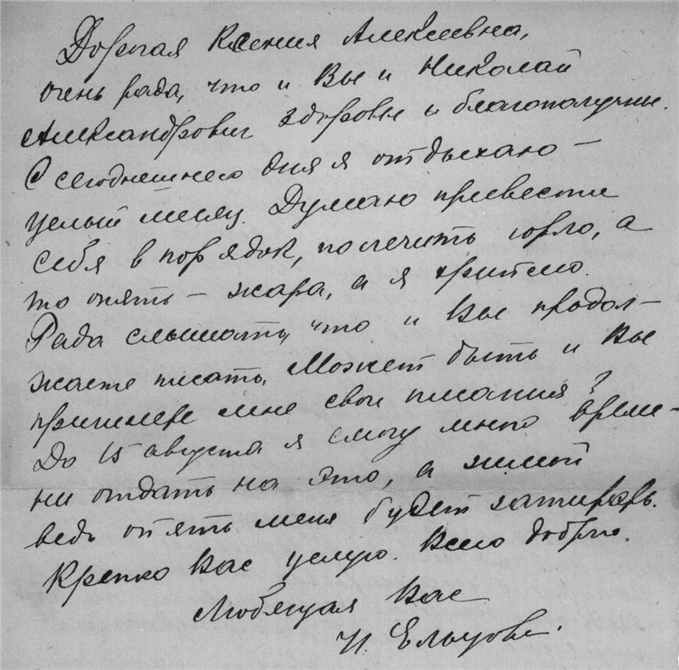 Дорогая Ксения Алексеевна,
очень рада, что и Вы и Николай
Александрович здоровы и благополучны.
С сегодняшнего дня я отдыхаю –
целый месяц. Думаю привести
себя в порядок, полечить горло, а
то опять – жара, а я хриплю.
Рада слышать, что и Вы продол-
жаете писать. Может быть и Вы
пришлете мне свои писания?
До 15 августа я смогу много време-
ни отдать на это, а зимой
ведь опять меня будет
Крепко Вас целую. Всего доброго.
Любящая Вас